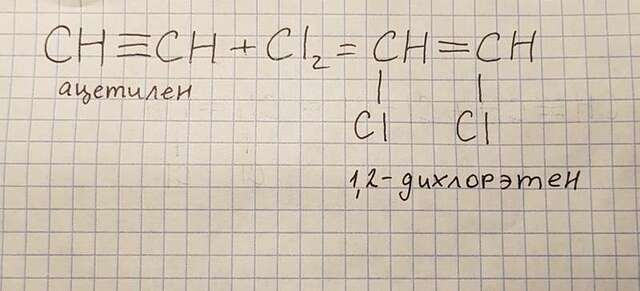 CH≡CH + Cl₂ = CH=CH
ацетилен
| |
Cl Cl
1,2-дихлорэтен